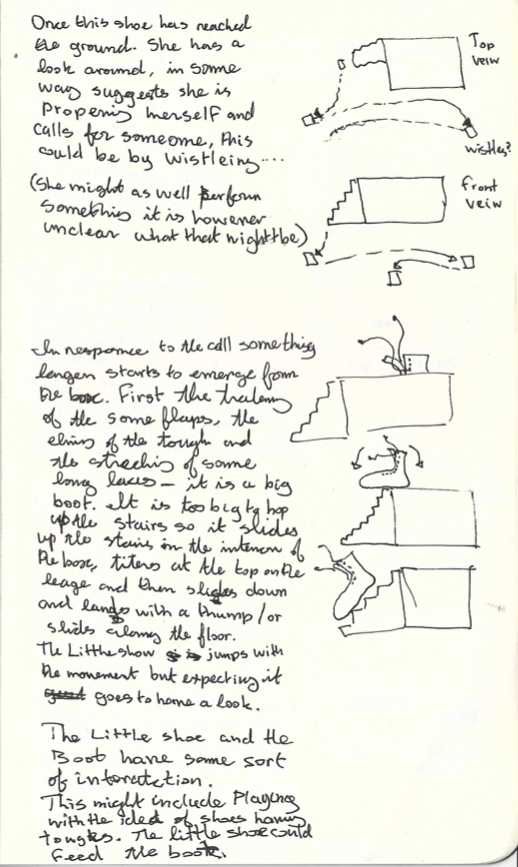 Once this shoe has reached
the ground. She has a
look around, in some
way suggests she is
Propening herself and
calls for someome, this
could be by wistleing....
(She might as well perform
somethis it is however
unclear what that mightbe)
Top
veiw
wistles?
front
veiw
In responce to the call something
langen starts to emerge from
the box. First the
of the some flaps, the
of the tough and
the of some
long laces – it is a big
boot. It is too big to hop
up the stairs so it slides
up the stairs in the interion of
the box, titers at the top on the
leage and then slides down
and lands with a thump/or
slides along the floor.
The Little show is jumps with
the movement but expecting it
goes to have a look.
The Little shoe and the
Boot have some sort
of interatation.
This might include Playing
with the idea of shoes having
tongues. The little shoe could
feed the boot.